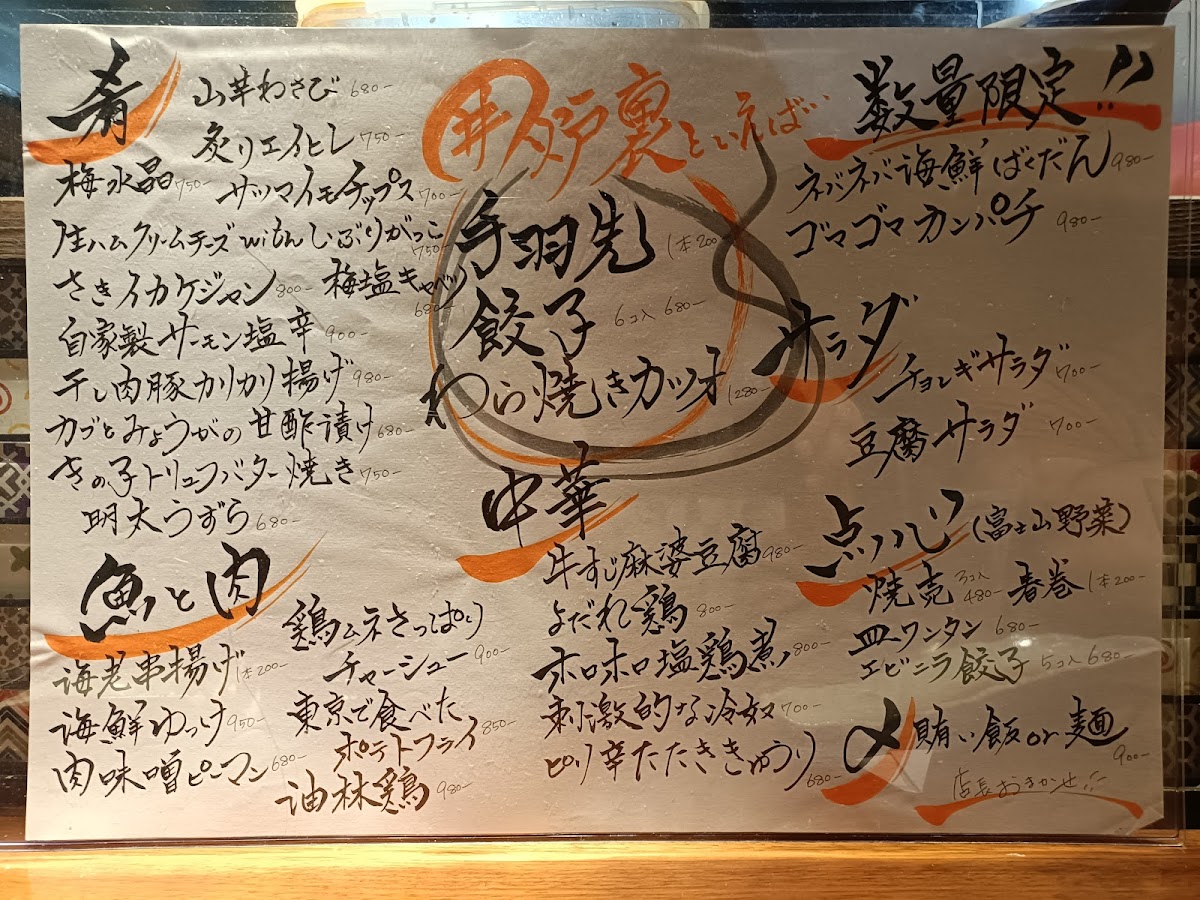 肴
山芋わさび 680-
炙りエイヒレ 750-
梅水晶 750-
サツマイモチップス 700-
生ハムクリームチーズ with いぶりがっこ 750-
さきイカケジャン 800-
梅塩キャベツ 680-
自家製サーモン塩辛 900-
干し肉豚カリカリ揚げ 980-
カブとみょうがの甘酢漬け 680-
きの子トリュフバター焼き 750-
明太うずら 680-
魚と肉
海老串揚げ 1本200-
海鮮ゆっけ 950-
肉味噌ピーマン 680-
鶏ムネさっぱり
チャーシュー 900-
東京で食べた
ポテトフライ 850-
油林鶏 980-
炉裏といえば…
手羽先 1本200-
餃子 6コ入 680-
わら焼きカツオ 1280-
中華
牛すじ麻婆豆腐 980-
よだれ鶏 800-
ホロホロ塩鶏煮 800-
刺激的な冷奴 700-
ピリ辛たたききゅうり 680-
数量限定!!
ネバネバ海鮮ばくだん 980-
ゴマゴマカンパチ 980-
サラダ
チョレギサラダ 700-
豆腐サラダ 700-
点心 (富士山野菜)
焼売 3コ入 480-
春巻 1本200-
皿ワンタン 680-
エビニラ餃子 5コ入 680-
〆 賄い飯or麺 900-
店長おまかせ!!